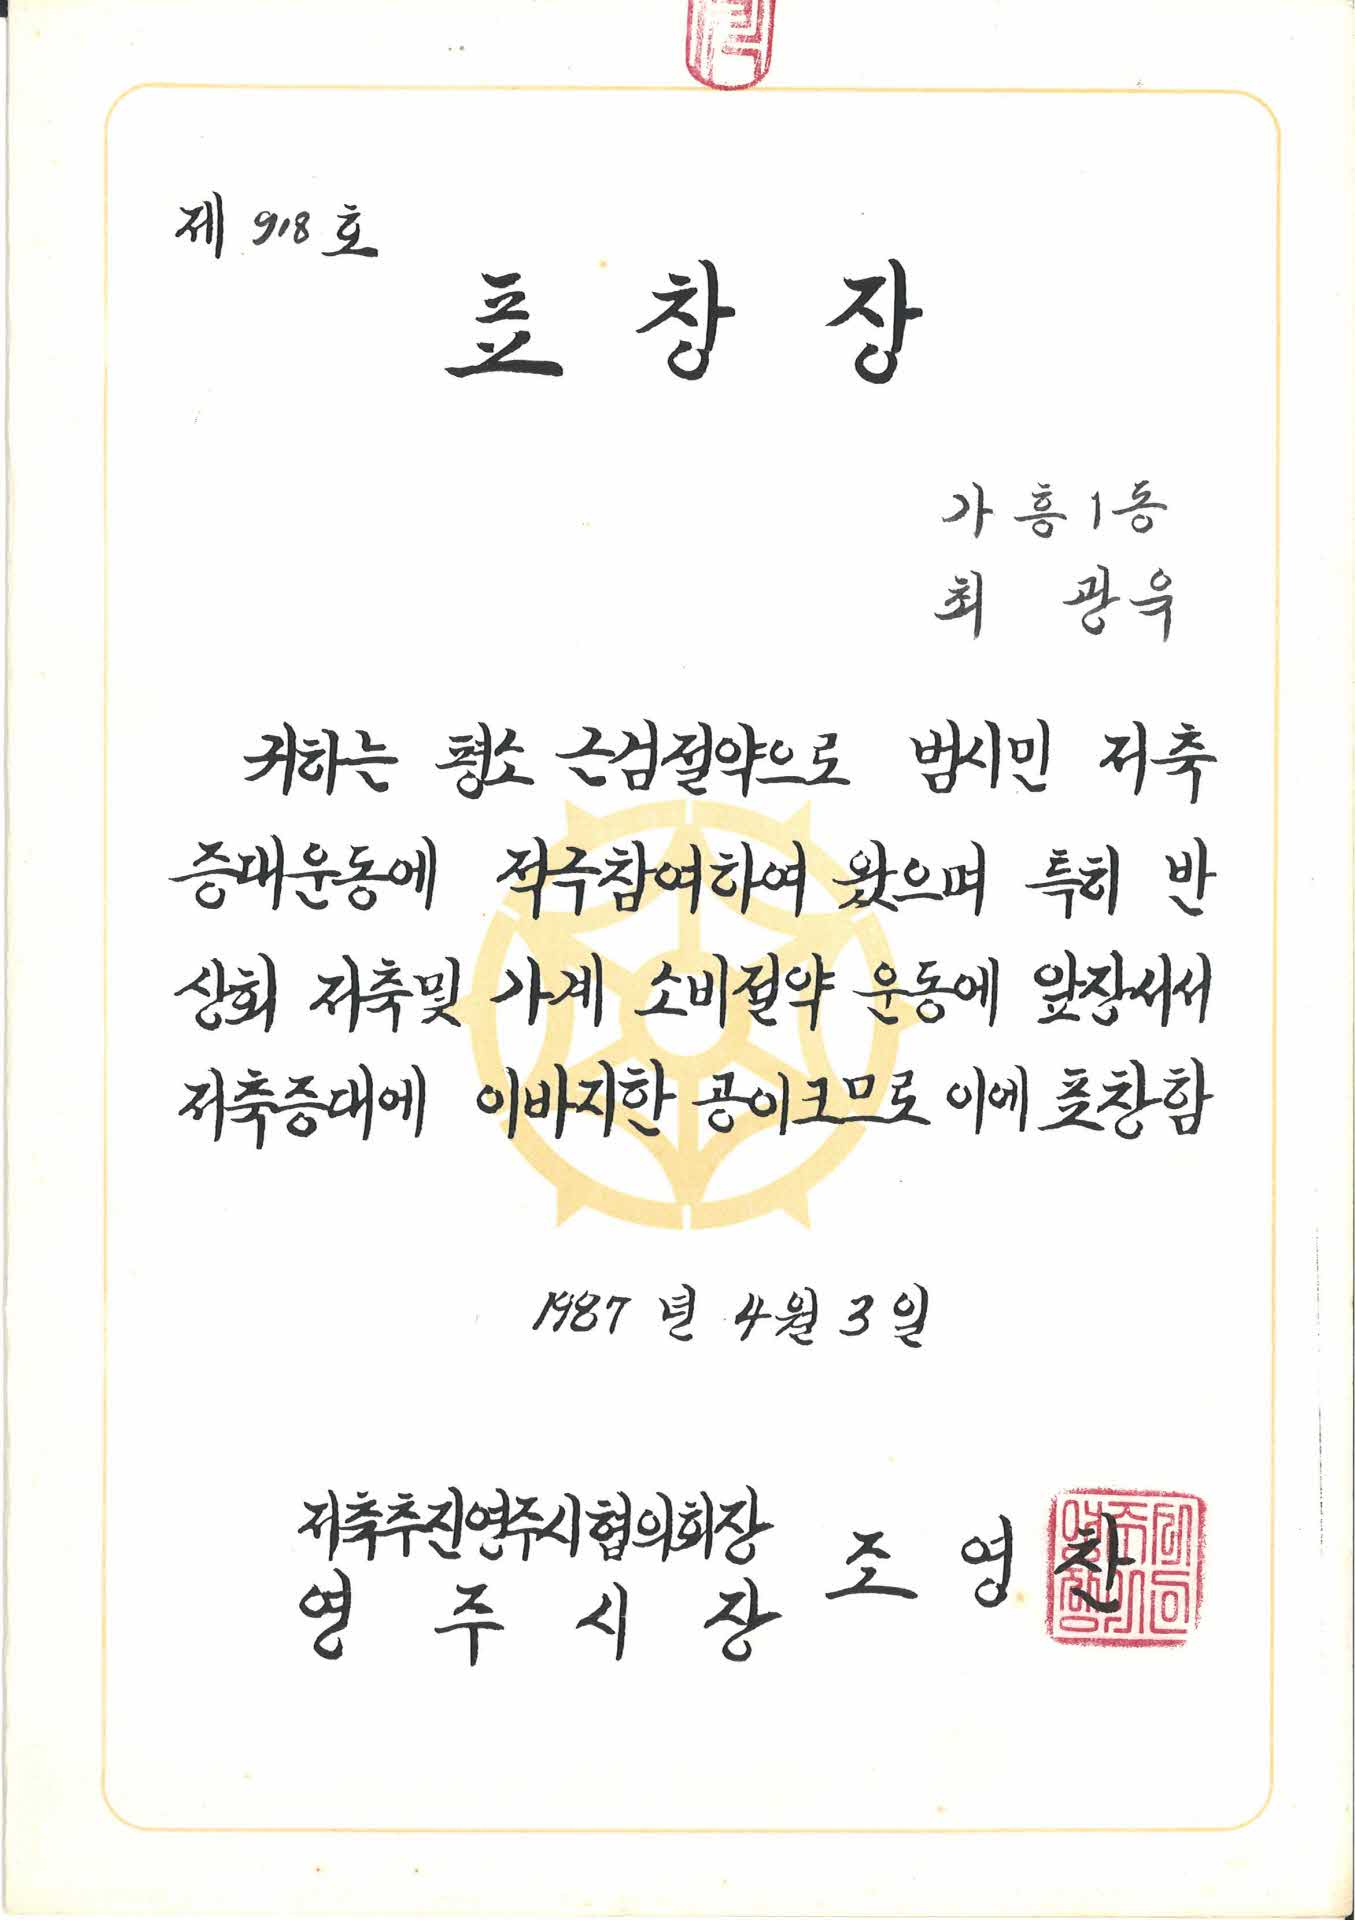 제 918 호
표 창 장
가흥1동
최 광욱
귀하는 평소 근검절약으로 범시민 저축
증대운동에 적극참여하여 왔으며 특히 반
상회 저축및 가계 소비절약 운동에 앞장서서
저축증대에 이바지한 공이크므로 이에 표창함
1987 년 4월 3일
저축추진영주시협의회장
영 주 시 장 조 영 찬